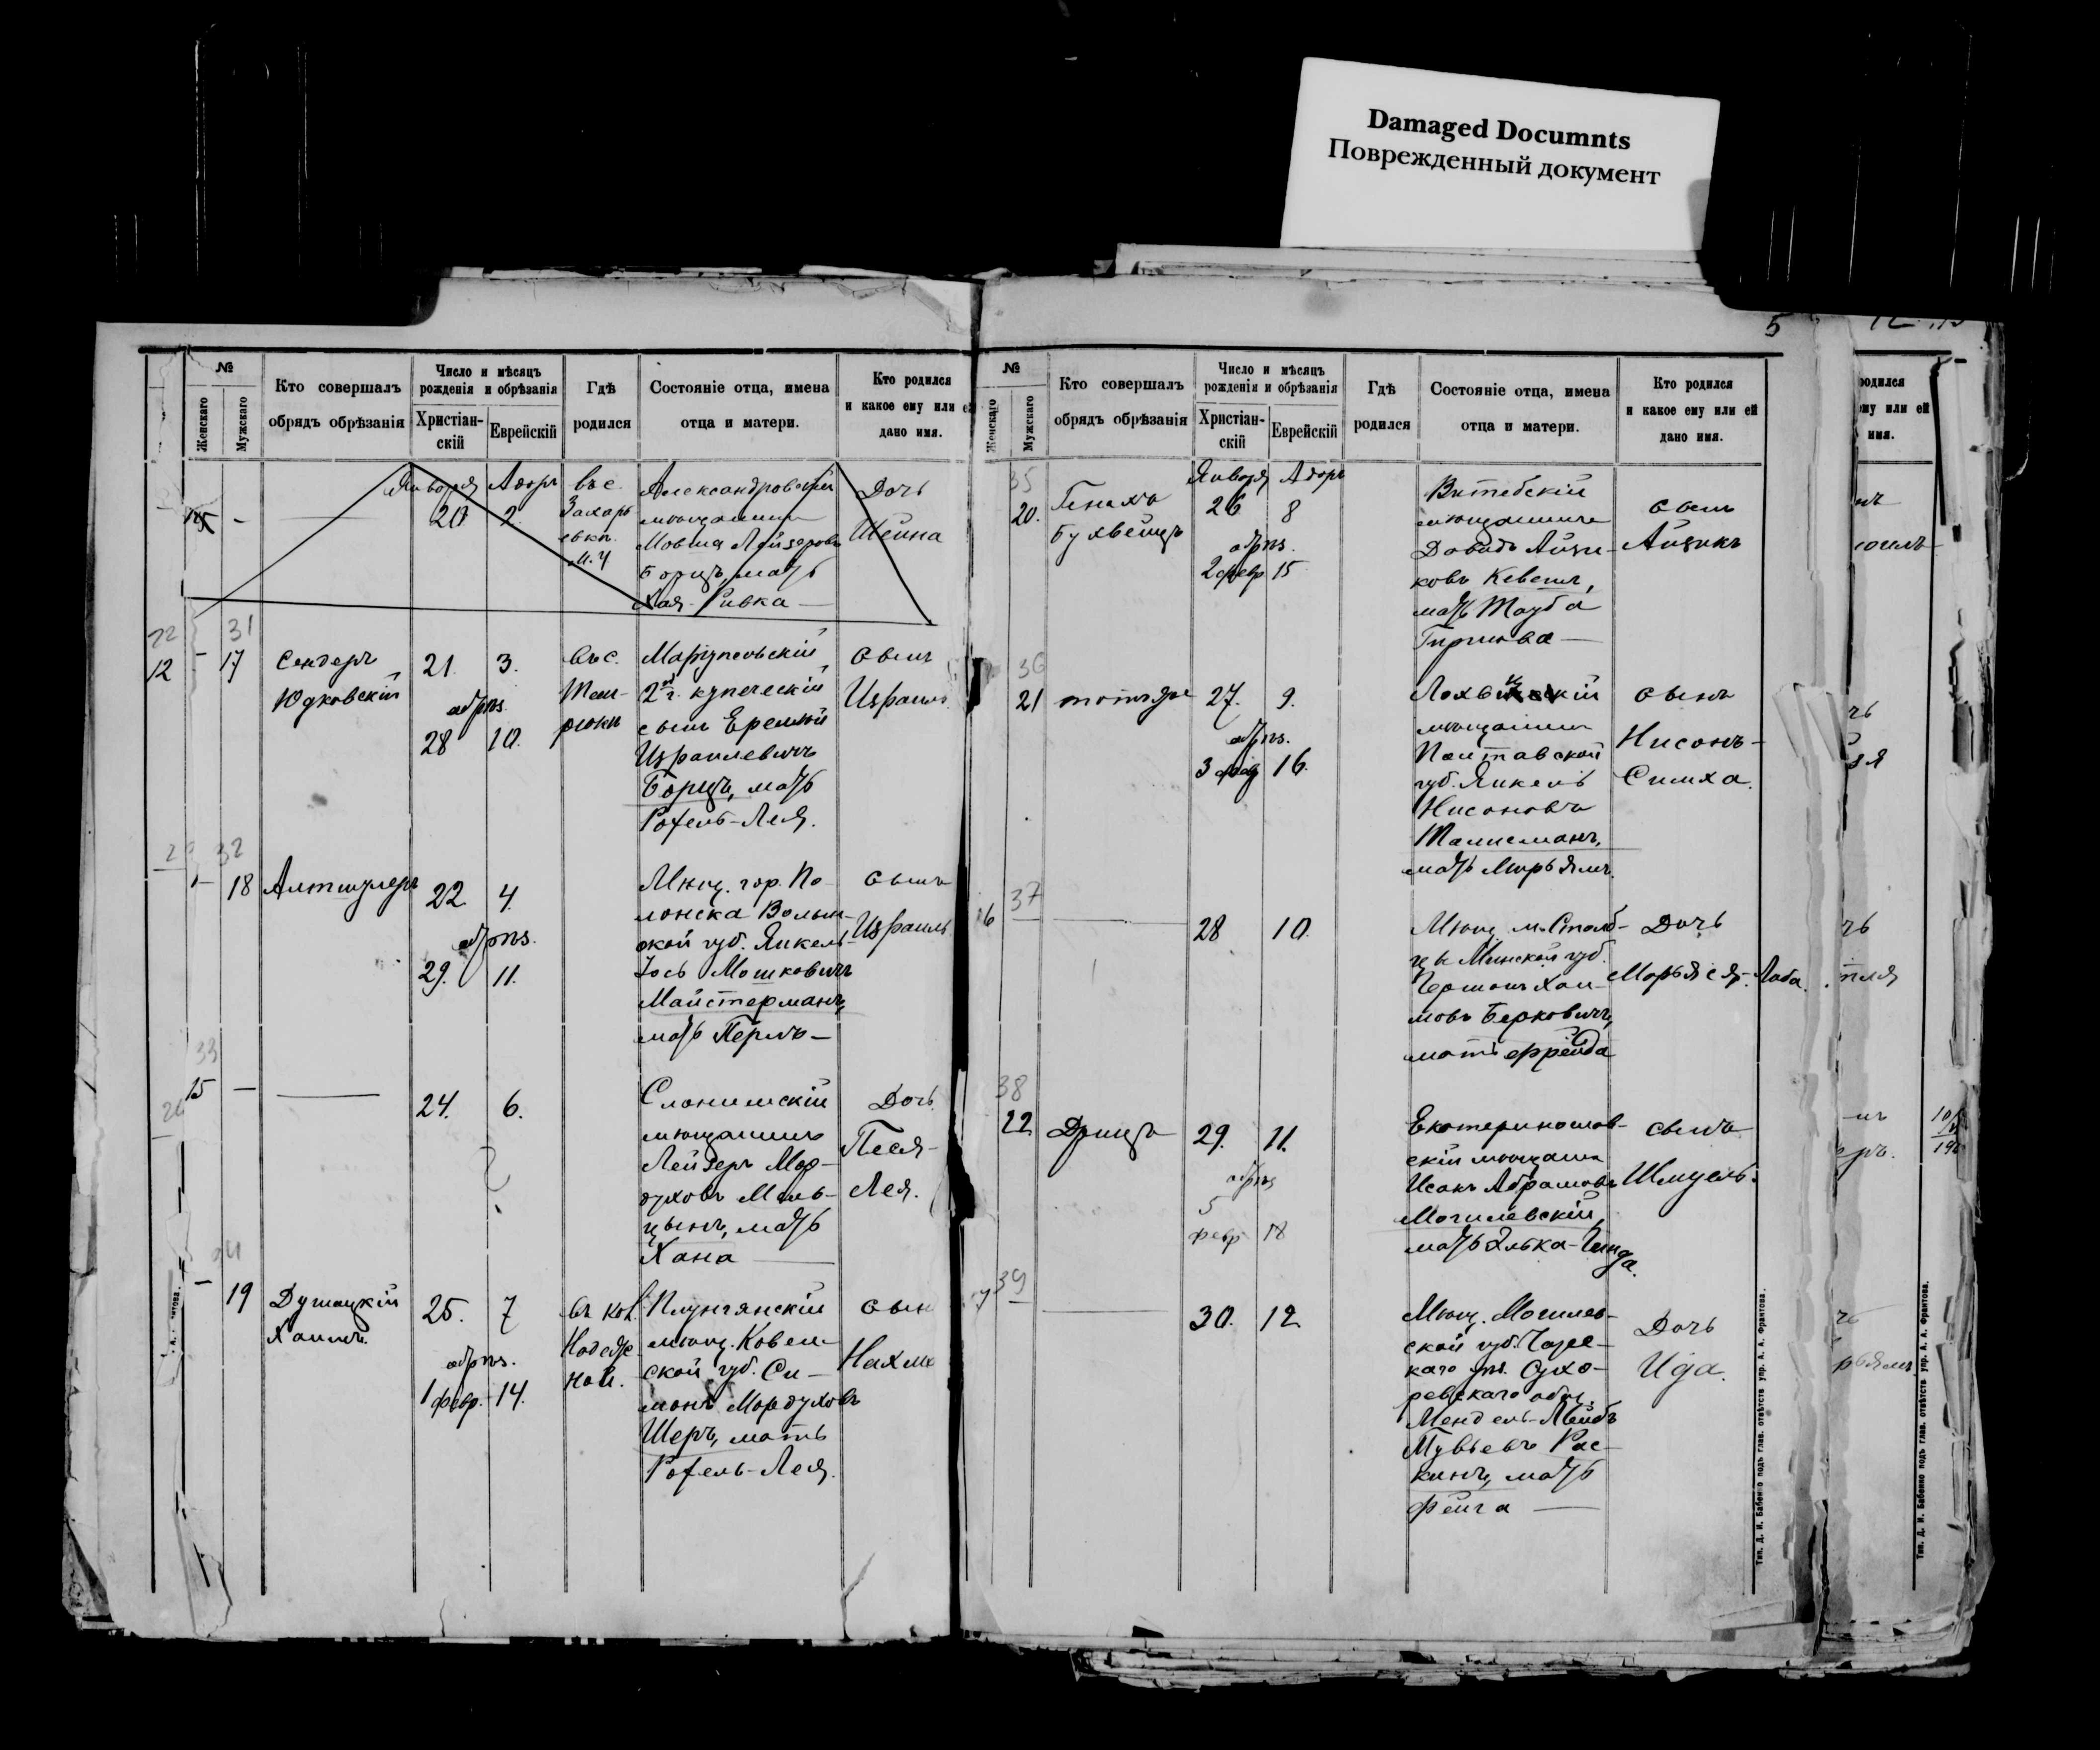 Damaged Documnts
Поврежденный документ
5
№
Женскаго
Мужскаго
Кто совершалъ
обрядъ обрѣзанія
Число и мѣсяцъ
рожденія и обрѣзанія
Христіан-
скій
Еврейскій
Гдѣ
родился
Состояніе отца, имена
отца и матери.
Кто родился
и какое ему или
дано имя.
Января Адаръ
20 2.
въ с.
Захарь
евкп.
Александровскій
мѣщанинъ
Мовша Лейзеровъ
Борицъ, мать
Хая-Ривка —
Дочь
Шейна
22
12
31
– 17
Сендеръ
Юдковскій
21. 3.
обрѣз.
28 10.
въ с.
Маріупольскій
2й г. купеческій
сынъ Еремѣй
Израилевичъ
Борицъ, мать
Рохель-Лея.
сынъ
Израиль
32
18
Алтшулеръ
22 4.
обрѣз.
29. 11.
Мѣщ. гор. По-
лонска Волын-
ской губ. Янкель-
Іось Мошковичъ
Майстерманъ,
мать Перль —
сынъ
Израиль
33
15 –
24. 6.
Слонимскій
мѣщанинъ
Лейзеръ Мор-
духовъ Мель-
цынъ, мать
Хана —
Дочь
Песя-
Лея.
34
– 19
Душацкій
Хаимъ
25. 7
обрѣз.
1 февр. 14.
въ кол.
Надеж-
ной.
Плунгянскій
мѣщ. Ковен-
ской губ. Си-
монъ Мордуховъ
Шеръ, мать
Рохель-Лея.
сын
Нахма
№
Женскаго
Мужскаго
Кто совершалъ
обрядъ обрѣзанія
Число и мѣсяцъ
рожденія и обрѣзанія
Христіан-
скій
Еврейскій
Гдѣ
родился
Состояніе отца, имена
отца и матери.
Кто родился
и какое ему или ей
дано имя.
Января Адаръ
35
20.
Генахъ
Бухвейцъ
26 8
обрѣз.
2 февр 15
Витебскій
мѣщанинъ
Давидъ Айзи-
ковъ Кевешъ,
мать Тауба
Гиршова —
сынъ
Айзикъ
36
21
тотъ же
27. 9.
обрѣз.
3 февр 16.
Лохвицкій
мѣщанинъ
Полтавской
губ. Янкель
Нисоновъ
Талисманъ,
мать Мирьямъ.
сынъ
Нисонъ-
Симха.
37
16
28 10.
Мѣщ. м. Столб-
цы Минской губ.
Гершонъ Хаи-
мовъ Берковичъ,
мать Фрейда
Дочь
Марьяся-Лаба.
38
22
Дрицъ
29. 11.
обрѣз
5
февр 18
Екатеринослав-
скій мѣщанинъ
Исакъ Абрамовъ
Могилевскій,
мать Элька-Гинда.
сынъ
Шмуель.
39
30. 12
Мѣщ. Могилев-
ской губ. Чаус-
каго уѣз. Сухо-
ревскаго общ.
Мендель-Лейбъ
Тувьевъ Рас-
кинъ, мать
Фейга —
Дочь
Ида.
Тип. Д. И. Бабенко подъ глав. отвѣтств упр. А. А. Франтова.
родился
ему или ей
имя.
Тип. Д. И. Бабенко подъ глав. отвѣтств упр. А. А. Франтова.